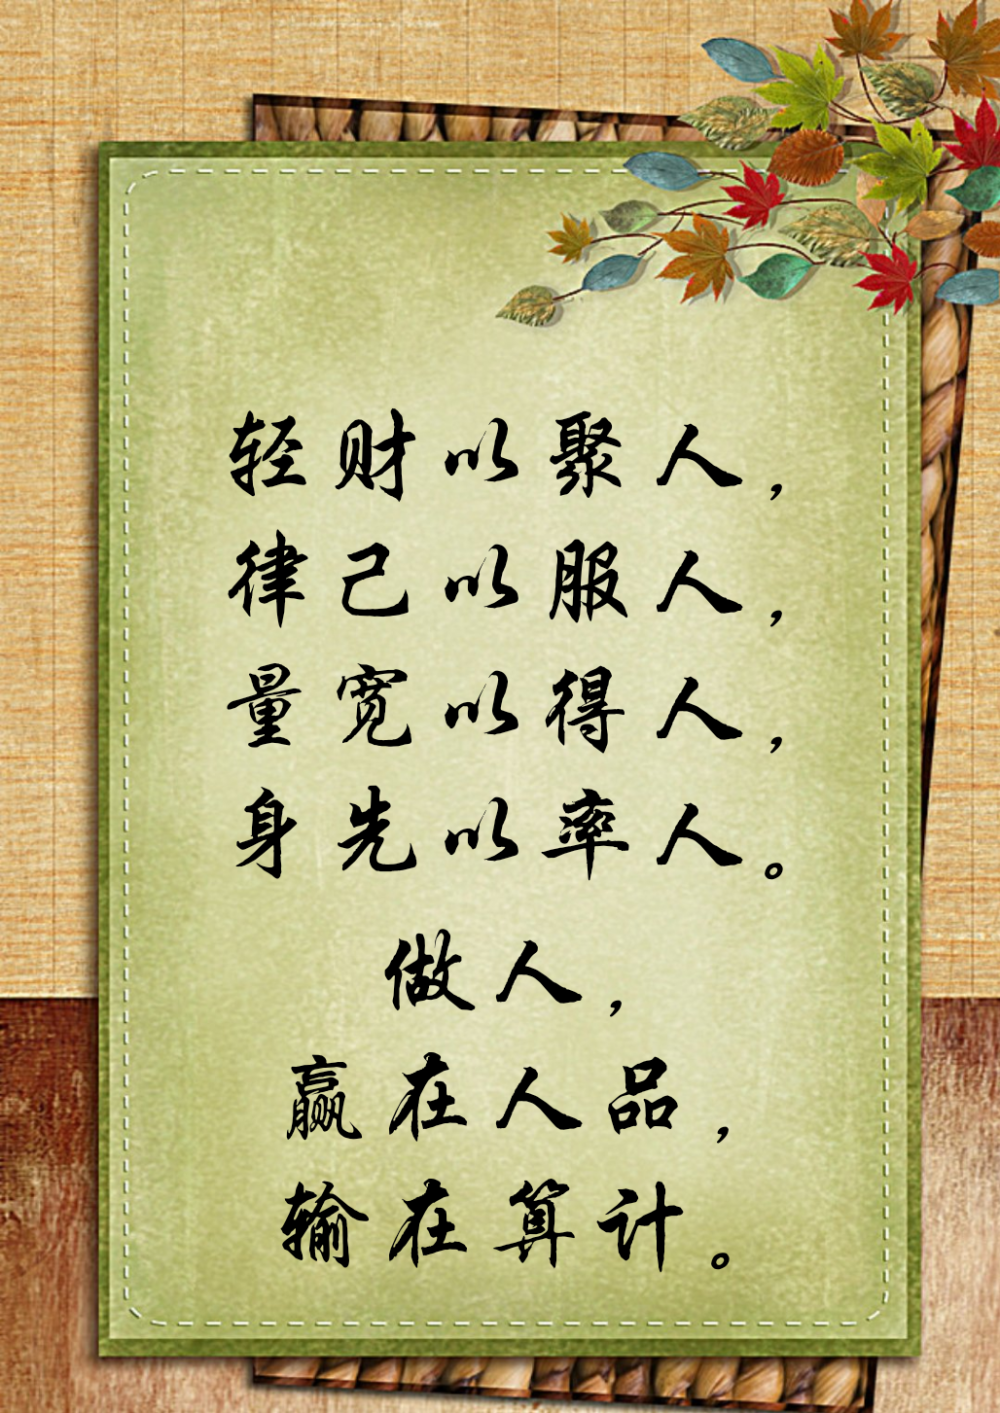 轻财以聚人，
律己以服人，
量宽以得人，
身先以率人。
做人，
赢在人品，
输在算计。